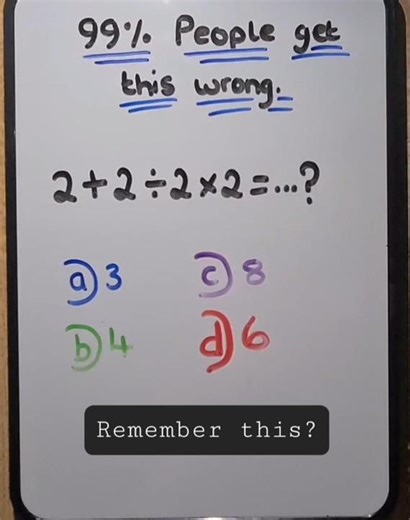 99% People get
this wrong.
2+2÷2×2=...?
a) 3
c) 8
b) 4
d) 6
Remember this?